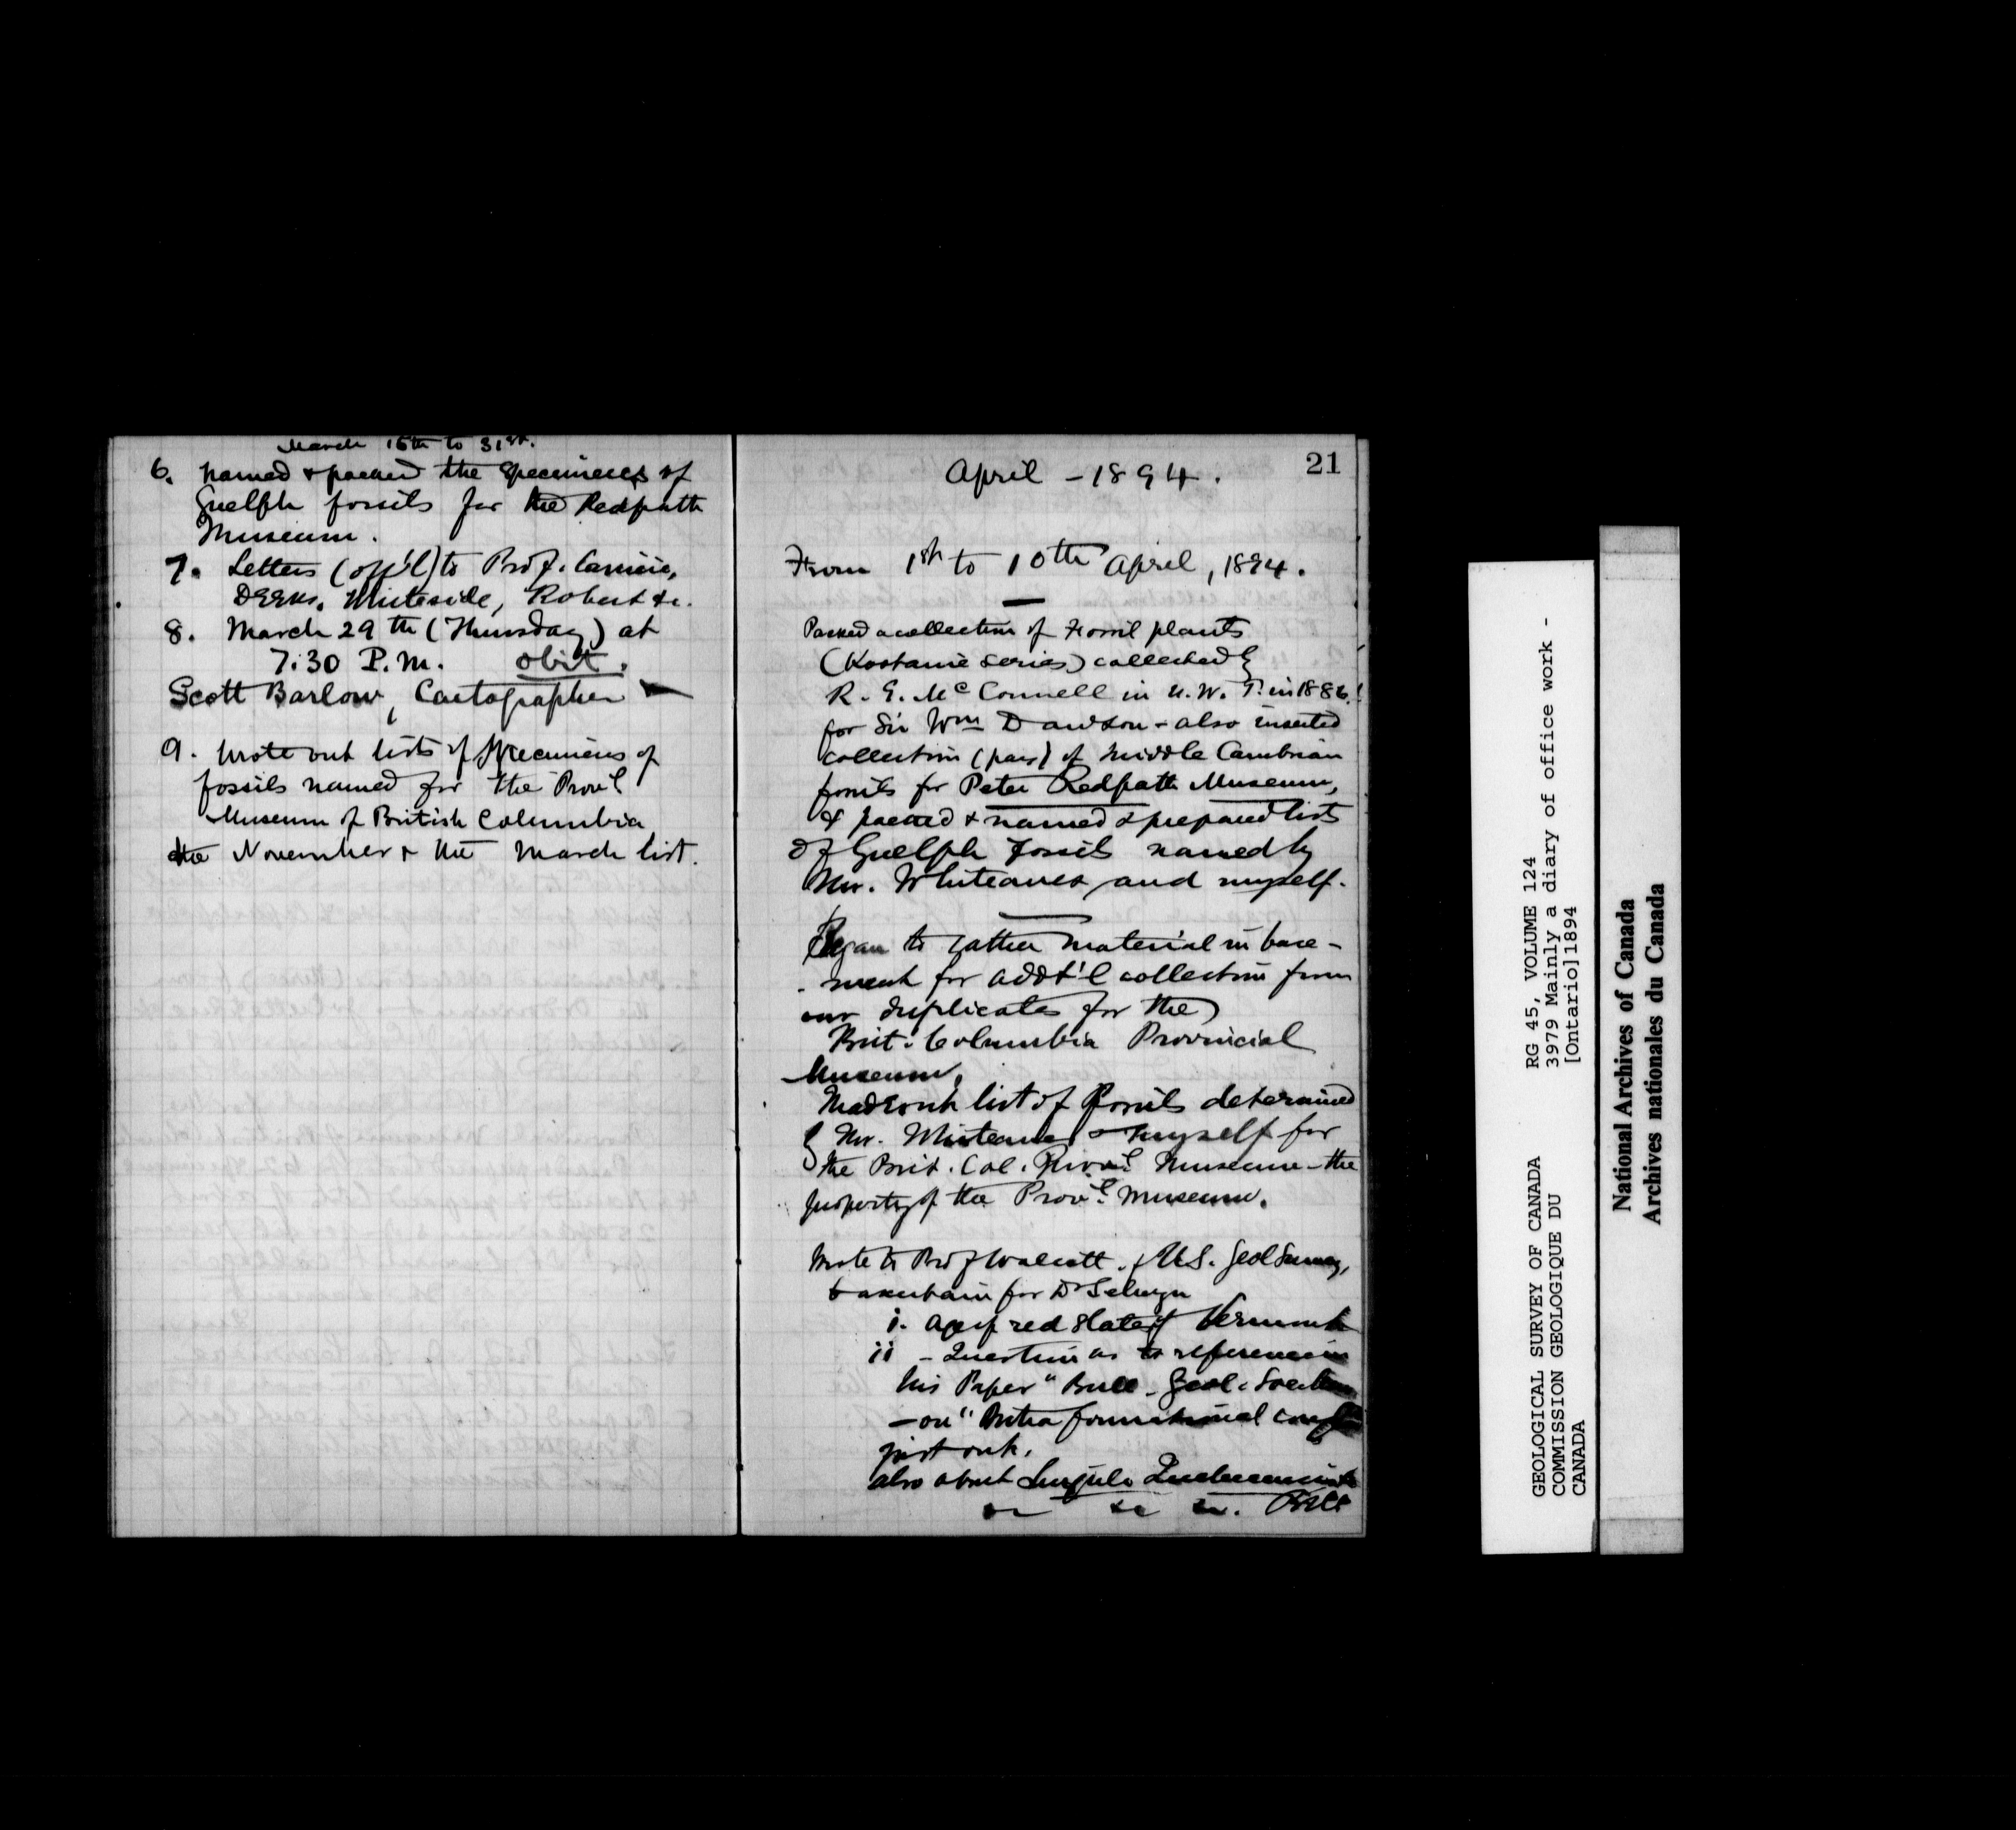 March 16th to 31st.
6. Named & packed the specimens of
Guelph fossils for the Redpath
Museum.
7. Letters (off'l) to Prof.
Whiteside, Robert &c.
8. March 29th (Thursday) at
7.30 P.M. obit.
Scott Barlow, Cartographer
9. Wrote out lists of specimens of
fossils named for the Prov'l
Museum of British Columbia
the November & the March list.
21
April - 1894.
From 1st to 10th April, 1894.
Packed a collection of Fossil plants
(Kootanie series) collected by
R. G. McConnell in N.W.T. in 188
for Sir Wm Dawson - also inserted
collection (pars) of Middle Cambrian
fossils for Peter Redpath Museum,
& packed & named & prepared lists
of Guelph Fossils named by
Mr. Whiteaves and myself.
Began to gather material in base-
ment for addt'l collection from
our duplicates for the
Brit. Columbia Provincial
Museum.
Made out list of Fossils determined
by Mr. Whiteaves & myself for
the Brit. Col. Prov'l Museum - the
property of the Prov'l Museum.
Wrote to Prof Walcott. U.S. Geol Survey,
to ascertain for Dr Selwyn
i. Age of red slates of Vermont
ii - Question as to reference in
his Paper "Bull. Geol. Soc
- on "Intraformational congl
just out.
also about Lingula
&c &c.
GEOLOGICAL SURVEY OF CANADA
COMMISSION GEOLOGIQUE DU
CANADA
RG 45, VOLUME 124
3979 Mainly a diary of office work -
[Ontario]1894
National Archives of Canada
Archives nationales du Canada